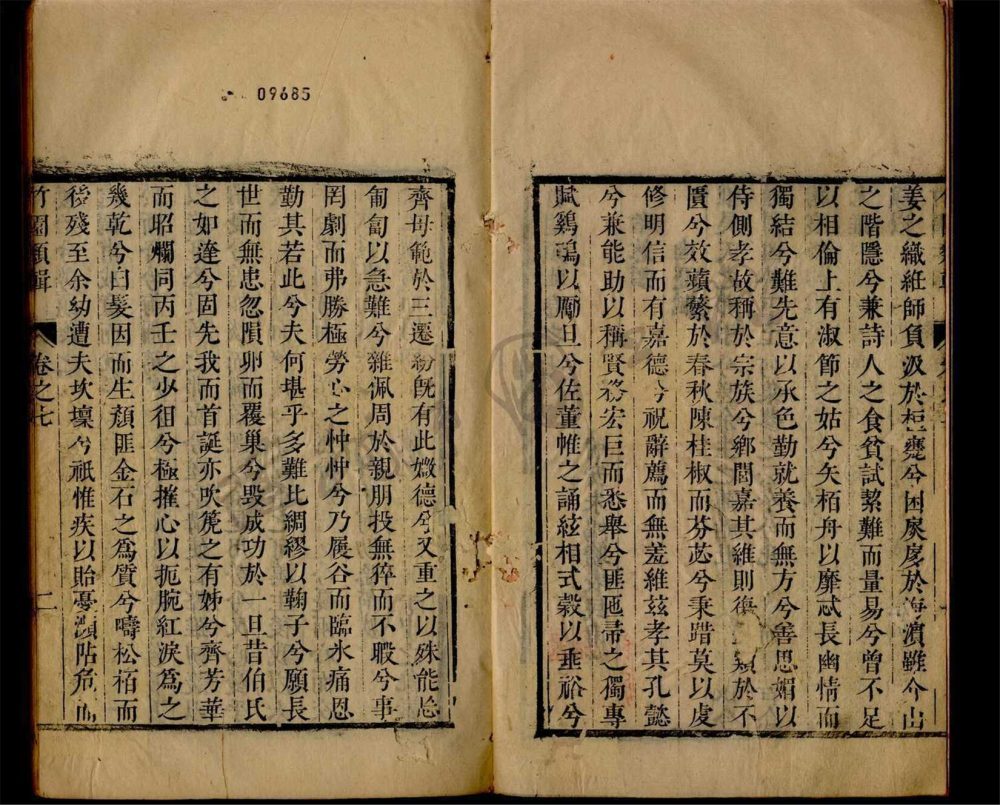 姜之織紝師負汲於桓甕兮困扊扅於海濱雖今出
之階隱兮兼詩人之食貧試絜難而量易兮曾不足
以相倫上有淑節之姑兮矢栢舟以靡忒長幽情而
獨結兮難先意以承色勤就養而無方兮善思媚以
侍側孝故稱於宗族兮鄉閭嘉其維則復 於不
匱兮效蘋蘩於春秋陳桂椒而芬苾兮秉踖莫以虔
修明信而有嘉德兮祝辭薦而無羞維玆孝其孔懿
兮兼能助以稱賢務宏巨而悉舉兮匪匜帚之獨專
賦鷄鳴以勵旦兮佐董帷之誦絃相式穀以垂裕兮
09685
齊母範於三遷紛旣有此媺德兮又重之以殊能
匍匐以急難兮雜佩周於親朋投無猝而不暇兮事
罔劇而弗勝極勞心之忡忡兮乃屐谷而臨氷痛恩
勤其若此兮夫何堪乎多難比綢繆以鞠子兮願長
世而無患忽隕卵而覆巢兮毀成功於一旦昔伯氏
之如達兮固先我而首誕亦吹篪之有姊兮齊芳華
而昭爛同丙壬之少徂兮極摧心以扼腕紅淚爲之
幾乾兮白髮因而生頹匪金石之爲質兮嚋松栢而
後殘至余幼遭夫坎壈兮祇惟疾以貽憂瀕阽危
竹園類輯 卷之七 二